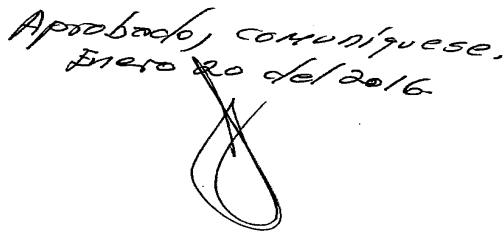 Aprobado, comuníquese.
Enero 20 del 2016